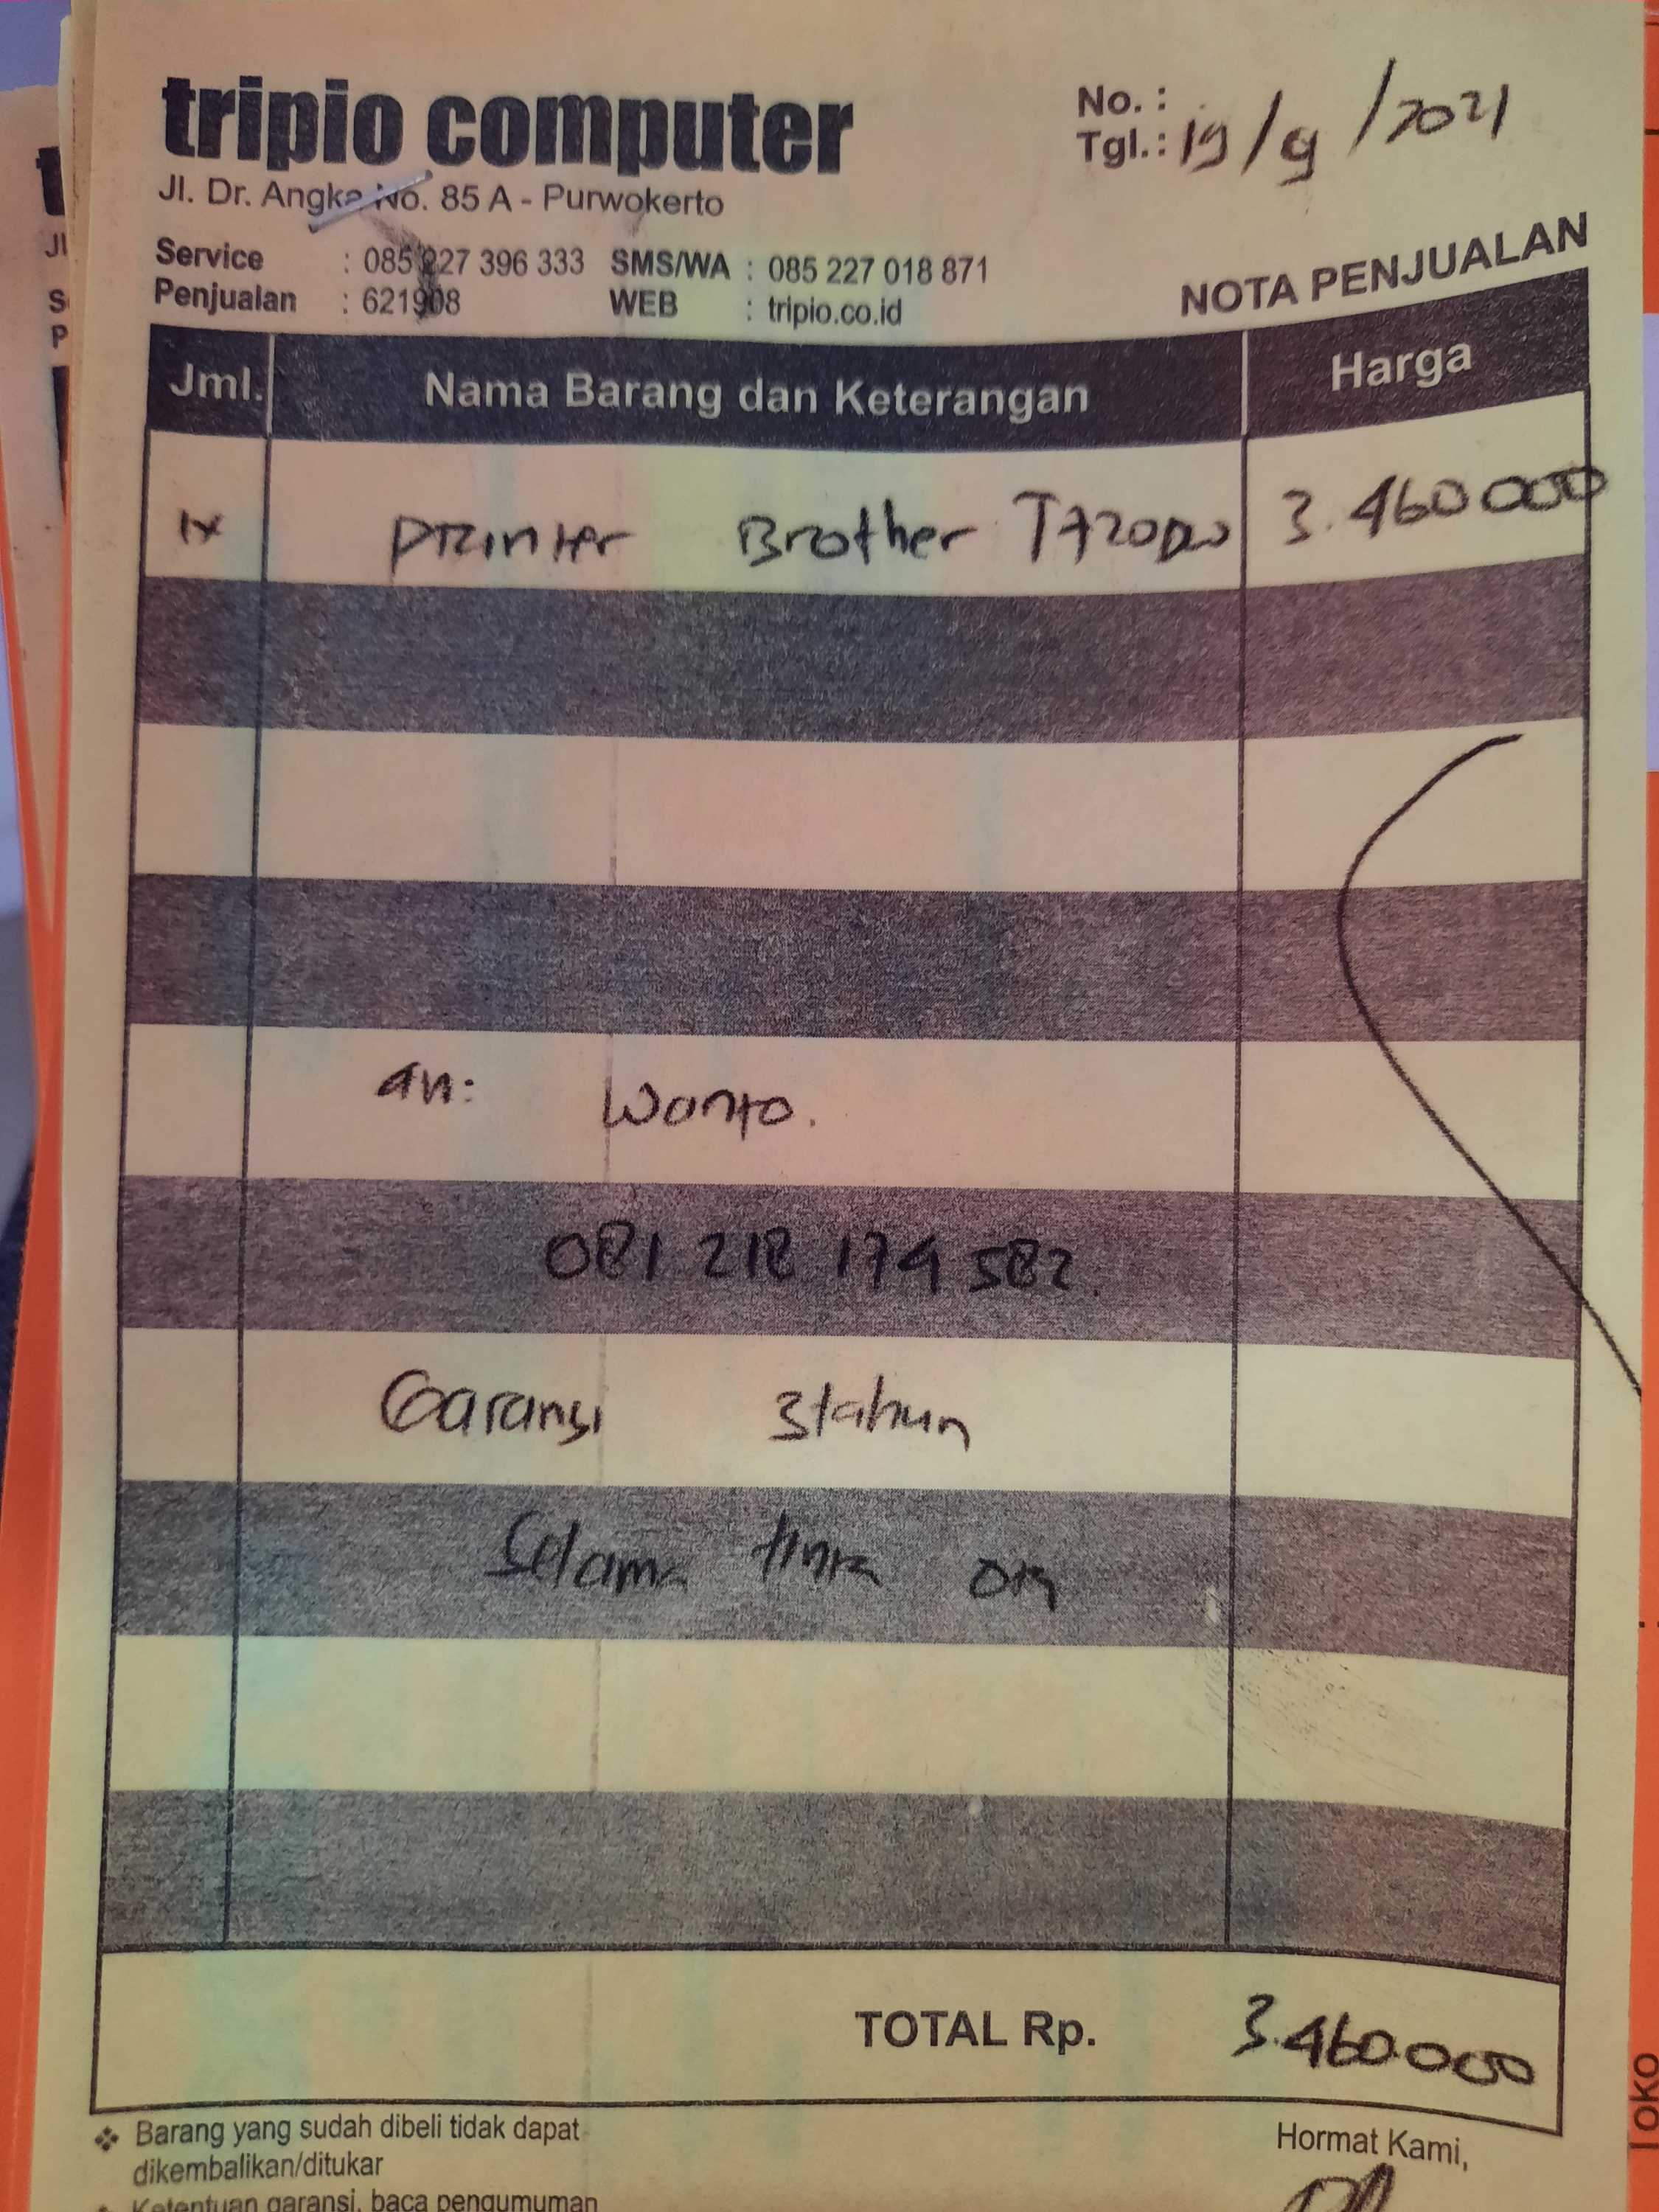 tripio computer
Jl. Dr. Angka No. 85 A - Purwokerto
Service : 085 227 396 333 SMS/WA : 085 227 018 871
Penjualan : 621908 WEB : tripio.co.id
No. :
Tgl. : 19/9/2021
NOTA PENJUALAN
Jml. Nama Barang dan Keterangan Harga
1x Printer Brother T720DW 3.460000
an: Wanto.
081 218 174 582.
Garansi 3 tahun
Selama tinta ori
TOTAL Rp. 3.460.000
Barang yang sudah dibeli tidak dapat
dikembalikan/ditukar
Ketentuan garansi, baca pengumuman
Hormat Kami,